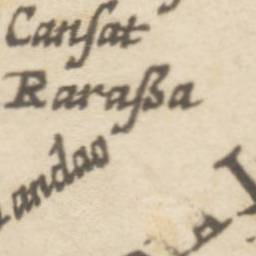 Canſat
Raraßa
andao